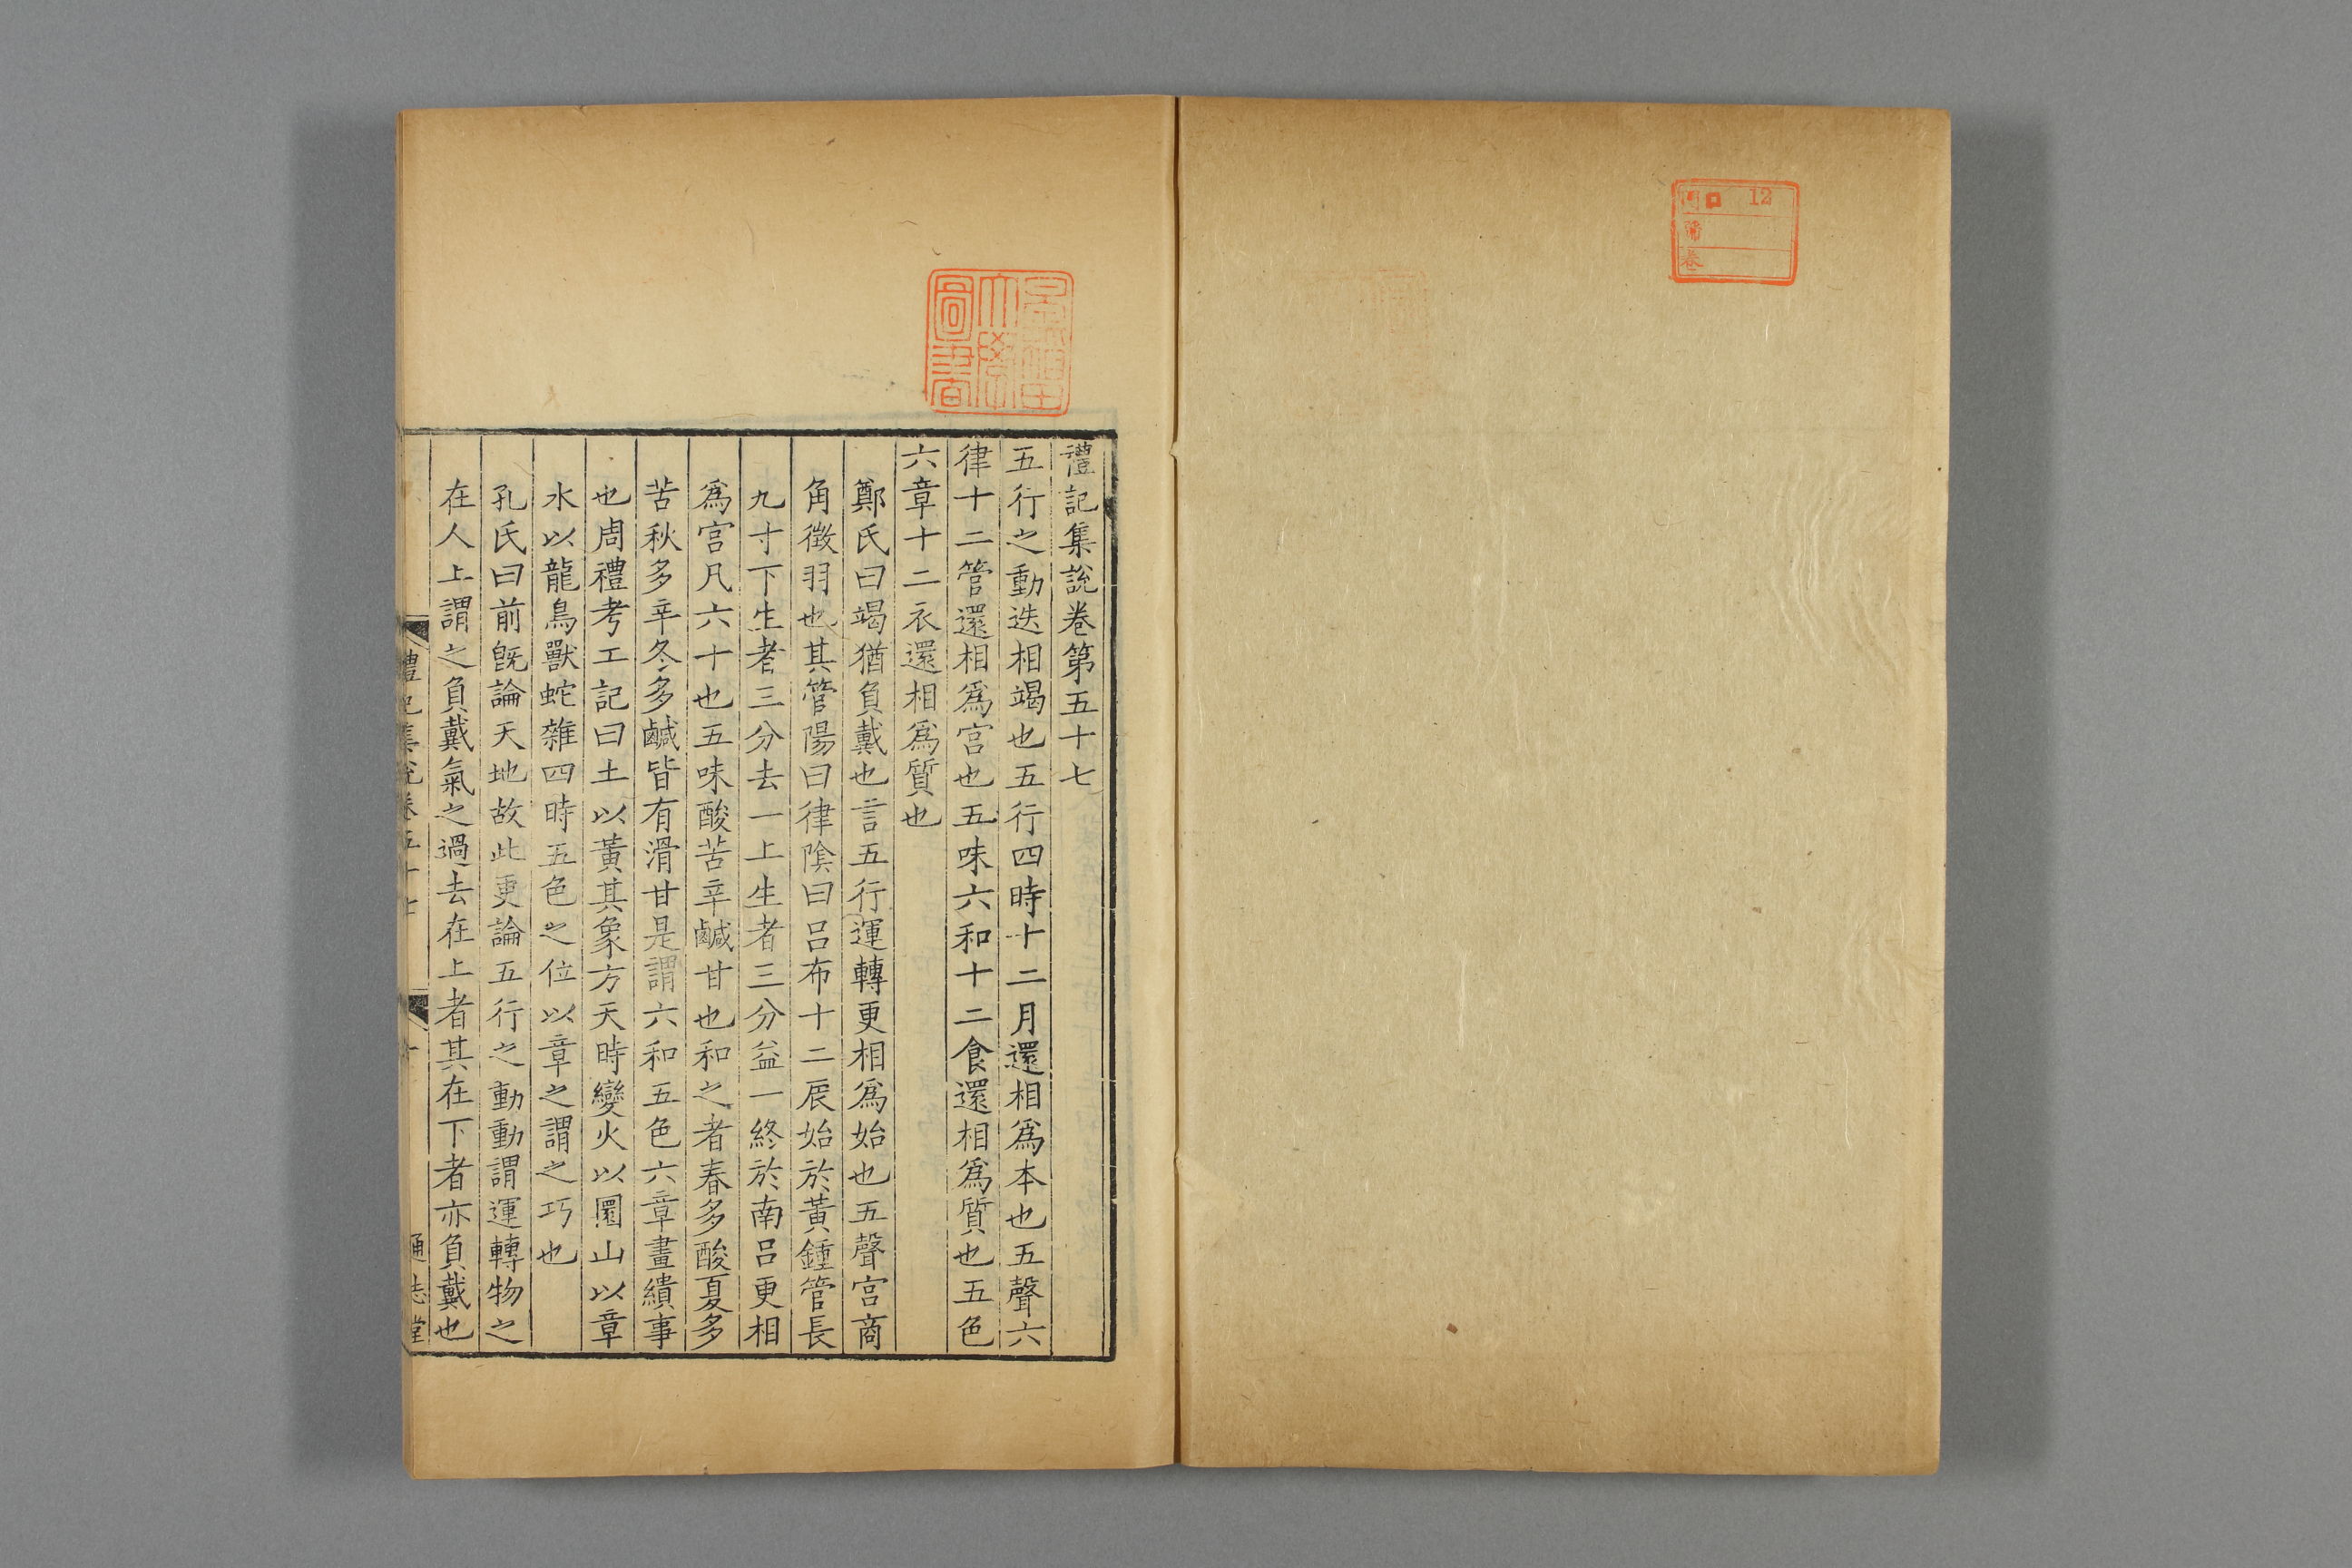 門 口 12
號
卷
早稻田大學圖書
禮記集說卷第五十七
五行之動迭相竭也五行四時十二月還相爲本也五聲六
律十二管還相爲宮也五味六和十二食還相爲質也五色
六章十二衣還相爲質也
鄭氏曰竭猶負戴也言五行運轉更相爲始也五聲宮商
角徵羽也其管陽曰律陰曰呂布十二辰始於黃鍾管長
九寸下生者三分去一上生者三分益一終於南呂更相
爲宮凡六十也五味酸苦辛鹹甘也和之者春多酸夏多
苦秋多辛冬多鹹皆有滑甘是謂六和五色六章畫繢事
也周禮考工記曰土以黃其象方天時變火以圜山以章
水以龍鳥獸蛇雜四時五色之位以章之謂之巧也
孔氏曰前旣論天地故此更論五行之動動謂運轉物之
在人上謂之負戴氣之過去在上者其在下者亦負戴也
禮記集說卷五十七 一 通志堂